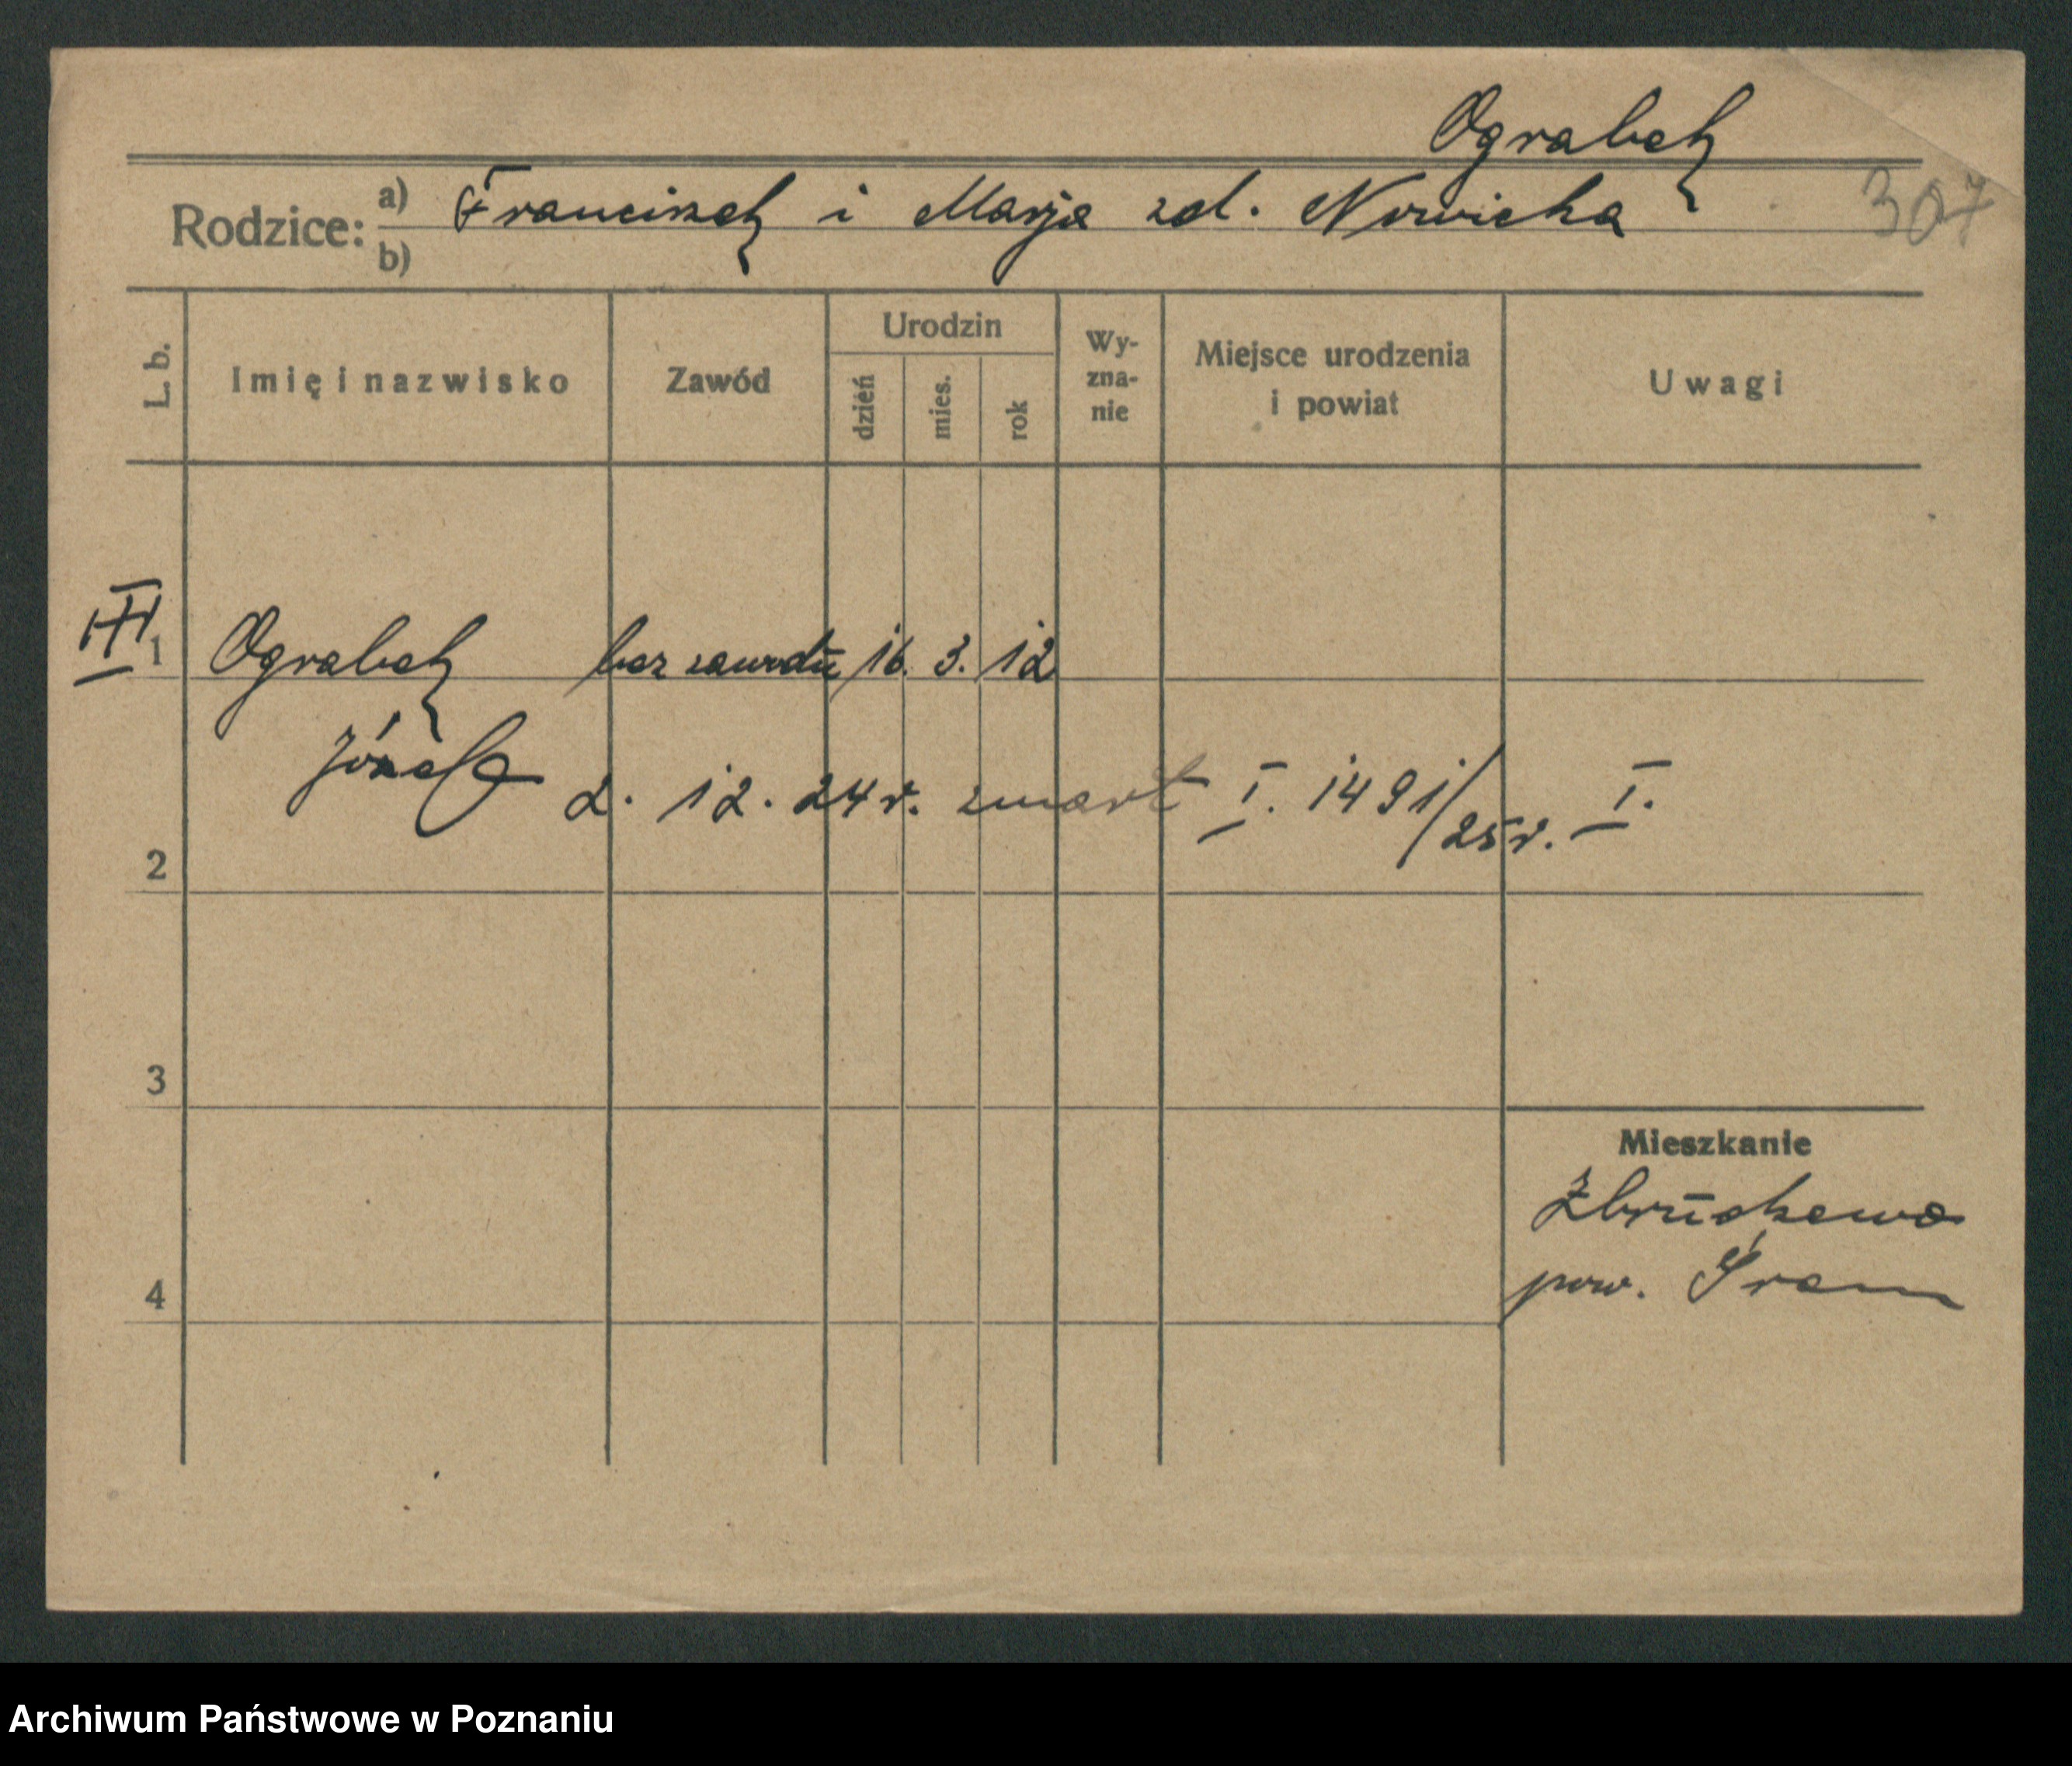 Ograbek
307
Rodzice: a) Franciszek i Marja zd. Nowicka
b)
L. b. Imię i nazwisko Zawód Urodzin dzień mies. rok Wy-zna-nie Miejsce urodzenia i powiat Uwagi
III
1 Ograbek bez zawodu 16. 3. 12
Józef 2. 12. 24 r. zmarł I. 1491/25 r. I.
2
3
Mieszkanie
Zbrudzewo
4 pow. Śrem
Archiwum Państwowe w Poznaniu